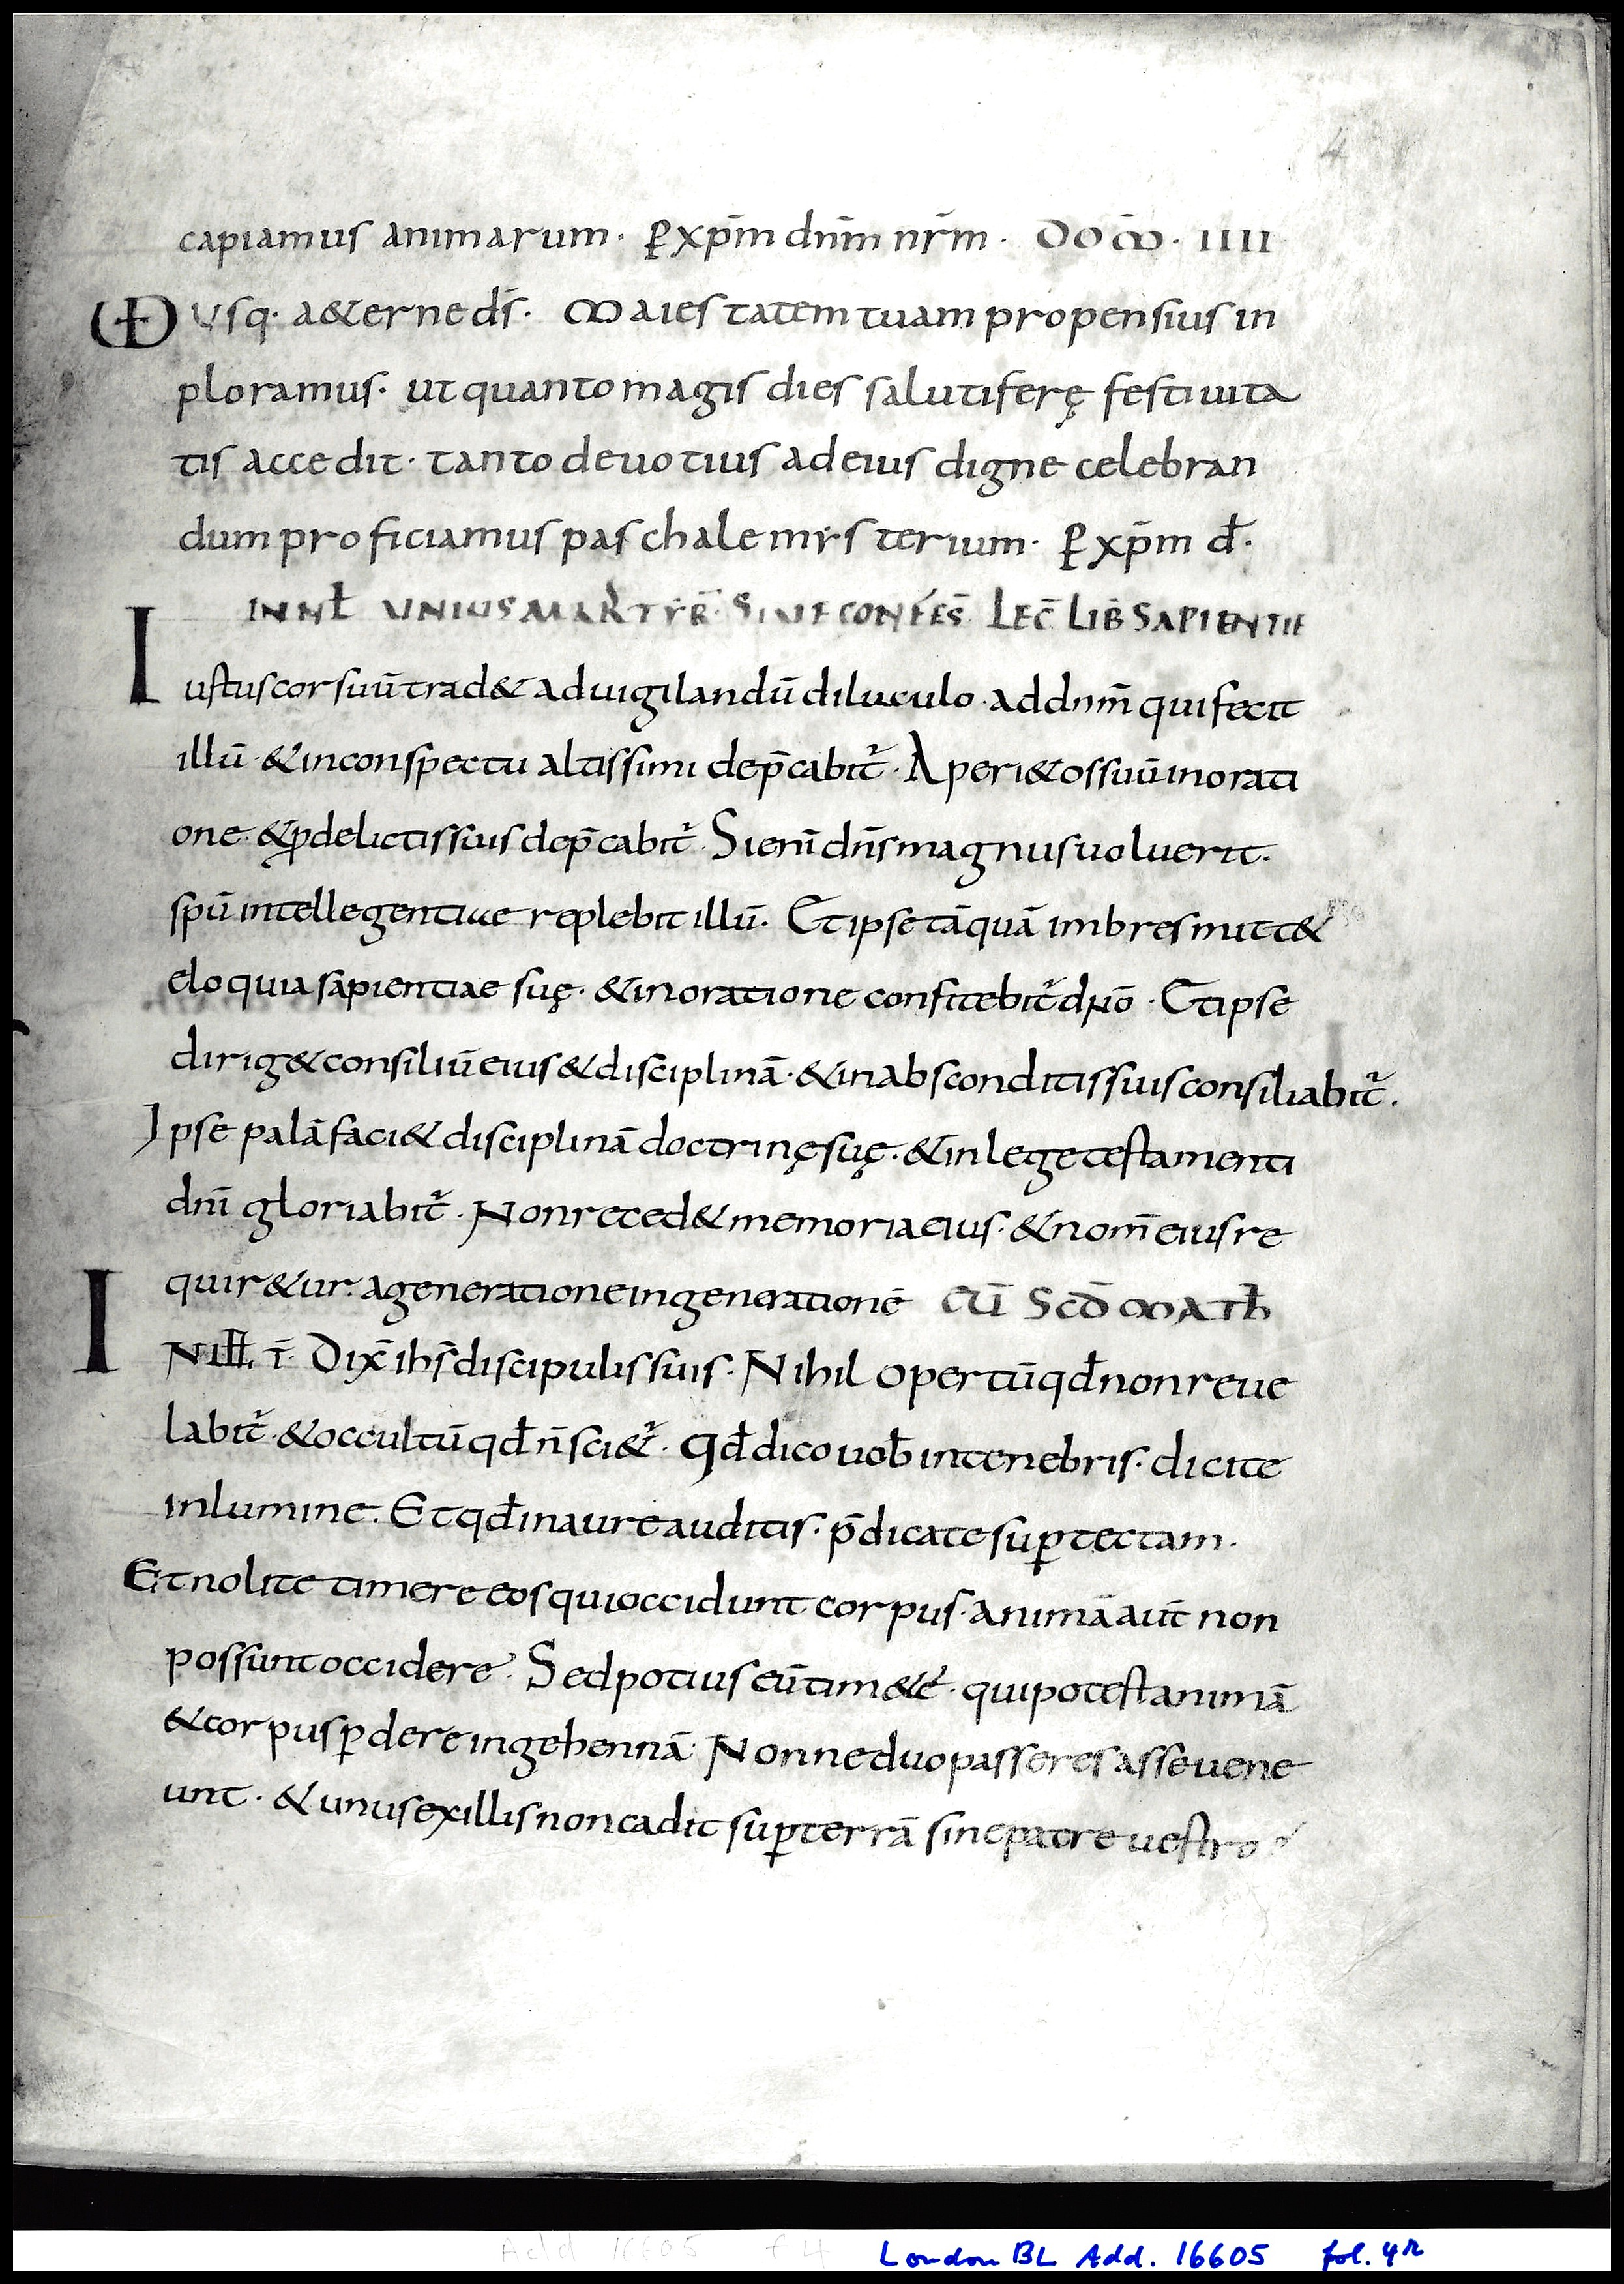 4
capiamus animarum· ꝑ xp̄m dnm̄ nr̄m· DOM̄· IIII
VD usq· a&erne ds̄· Maiestatem tuam propensius in
ploramus· ut quanto magis dies salutiferę festiuita
tis accedit· tanto deuotius ad eius digne celebran
dum proficiamus paschale mysterium· ꝑ xp̄m d̄·
IN NAT̄ UNIUS MARTYR̄· SIUE CONFES̄ LEC̄ LIB̄ SAPIENTIE
Iustus cor suū trad& ad uigilandū diluculo· ad dnm̄ qui fecit
illū· & in conspectu altissimi dep̄cabit᷑· Aperi& os suū in orati
one· & ꝓ delictis suis dep̄cabit᷑· Si eni̅ dn̄s magnus uoluerit·
spū intellegentiae replebit illū· Et ipse tāquā imbres mitt&
eloquia sapientiae suę· & in oratione confitebit᷑ dn̄o· Et ipse
dirig& consiliū eius & disciplinā· & in absconditis suis consiliabit᷑·
Ipse palā faci& disciplinā doctrinę suę· & in lege testamenti
dnī gloriabit᷑· Non reced& memoria eius· & nom̄ eius re
quir&ur· a generatione in generationē EŪ SCD̄ MATH̄
IN ILL̄· T̄· Dix̄ ihs̄ discipulis suis· Nihil opertū qd̄ non reue
labit᷑· & occultū qd̄ n̄ sci&᷑· Qd̄ dico uob̄ in tenebris· dicite
in lumine· Et qd̄ in aure auditis· p̄dicate suꝑ tectam·
Et nolite timere eos qui occidunt corpus· animā aut̄ non
possunt occidere· Sed potius eū tim&e· qui potest animā
& corpus ꝑdere in gehennā· Nonne duo passeres asse uene
unt· & unus ex illis non cadit suꝑ terrā sine patre uestro
Add 16605 f 4
London BL Add. 16605 fol. 4r